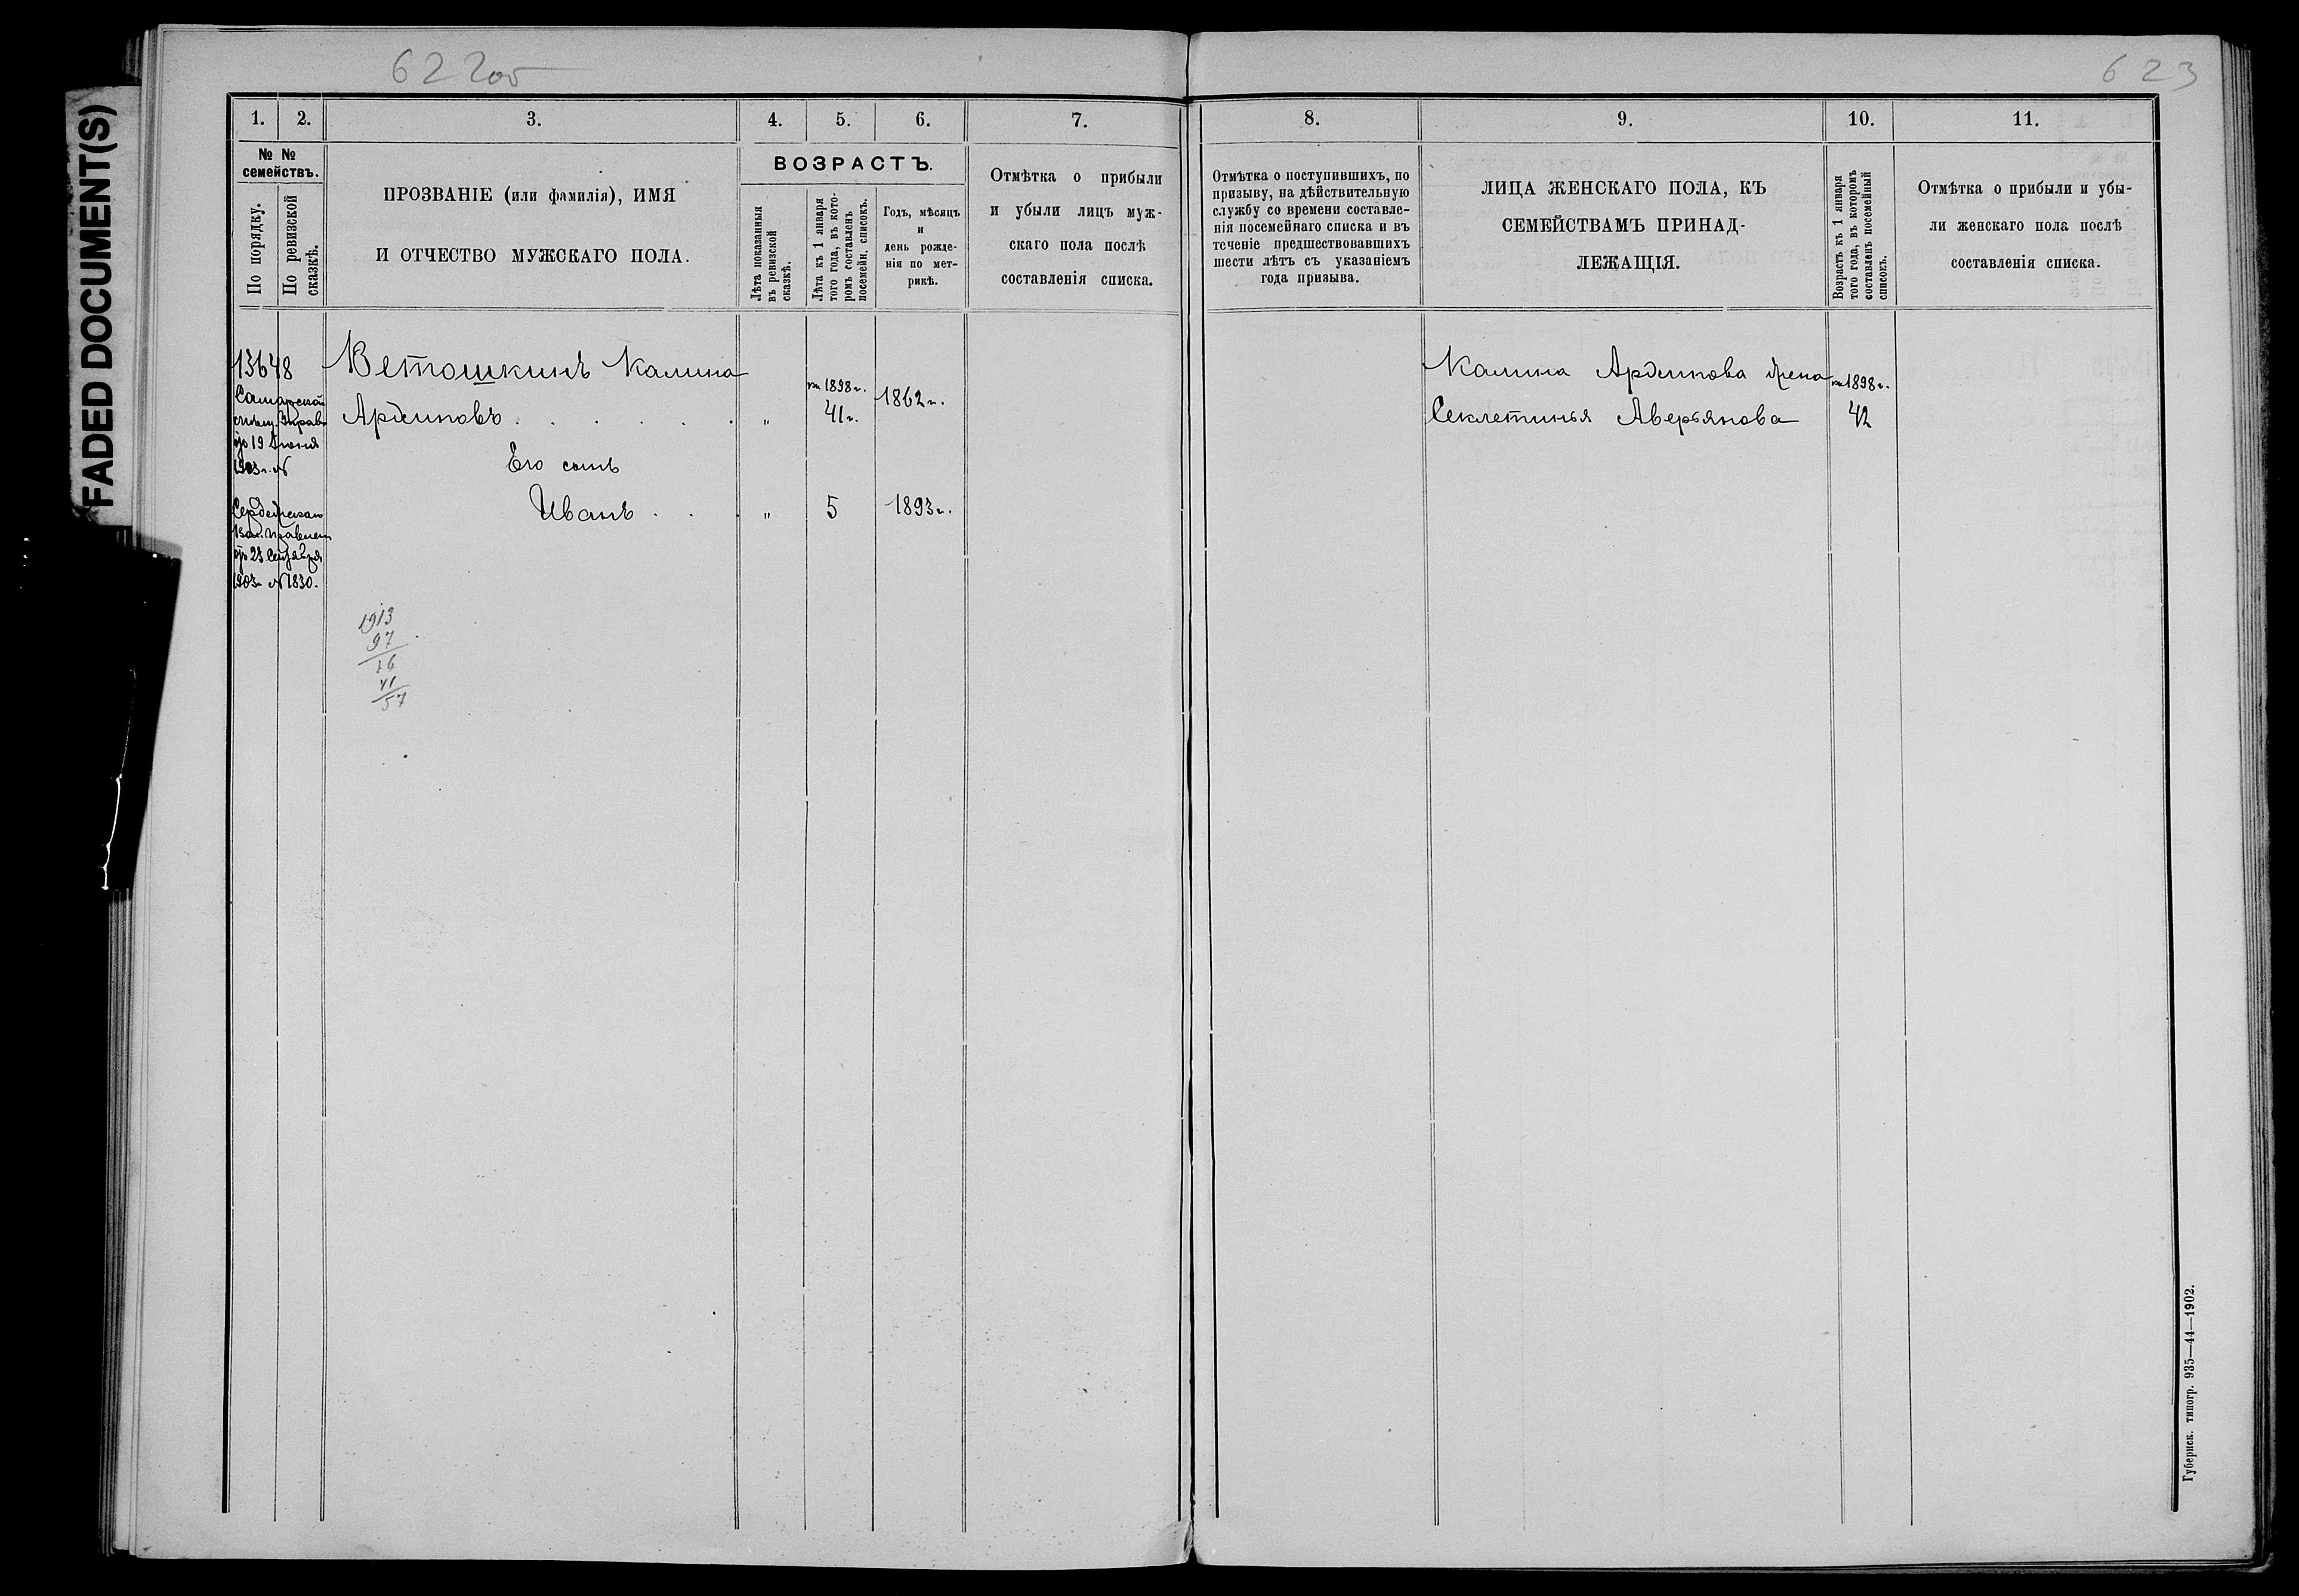 FADED DOCUMENT(S)
622об
623
1. 2. 3. 4. 5. 6. 7.
№ №
семействъ.
По порядку.
По ревизской
сказкѣ.
ПРОЗВАНІЕ (или фамилія), ИМЯ
И ОТЧЕСТВО МУЖСКАГО ПОЛА.
ВОЗРАСТЪ.
Лѣта показанныя
въ ревизской
сказкѣ.
Лѣта къ 1 января
того года, въ кото-
ромъ составленъ
посемейн. списокъ.
Годъ, мѣсяцъ
и
день рожде-
нія по мет-
рикѣ.
Отмѣтка о прибыли
и убыли лицъ муж-
скаго пола послѣ
составленія списка.
8. 9. 10. 11.
Отмѣтка о поступившихъ, по
призыву, на дѣйствительную
службу со времени составле-
нія посемейнаго списка и въ
теченіе предшествовавшихъ
шести лѣтъ съ указаніемъ
года призыва.
ЛИЦА ЖЕНСКАГО ПОЛА, КЪ
СЕМЕЙСТВАМЪ ПРИНАД-
ЛЕЖАЩІЯ.
Возрастъ къ 1 января
того года, въ которомъ
составленъ посемейный
списокъ.
Отмѣтка о прибыли и убы-
ли женскаго пола послѣ
составленія списка.
13648
Ветошкинъ Калина
на 1898 г.
1862 г.
41 г.
19 Іюня
1903 г. №
Его сынъ
Иванъ . . . „ 5 1893 г.
1903 г. № 1830.
1913
97
16
41
57
Калина жена
на 1898 г.
Секлетинья Аверьянова 42
Губернск. типогр. 935—44—1902.